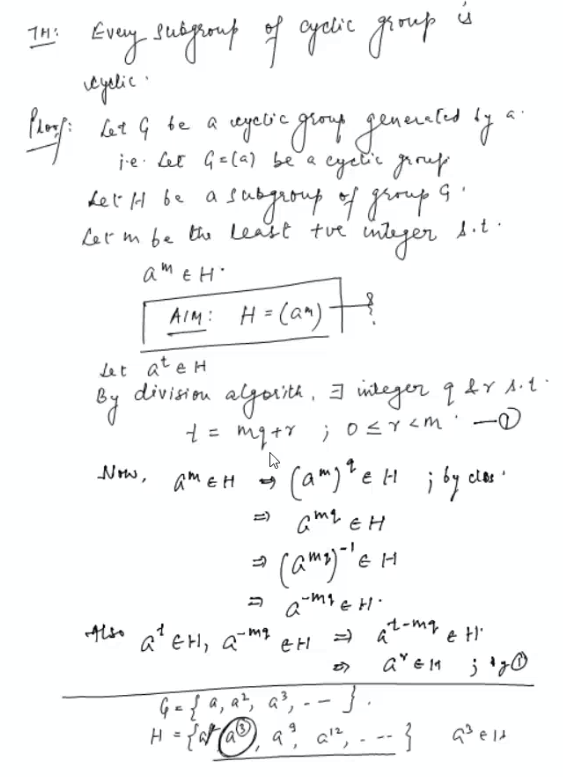 TH: Every subgroup of cyclic group is
cyclic.
Proof: Let G be a cyclic group generated by a.
i.e. Let G=(a) be a cyclic group
Let H be a subgroup of group G.
Let m be the least +ve integer s.t.
a^m ∈ H.
AIM: H = (a^m)
Let a^t ∈ H
By division algorith, ∃ integer q & r s.t.
t = mq+r ; 0 ≤ r < m. —①
Now, a^m ∈ H ⇒ (a^m)^q ∈ H ; by clos.
⇒ a^{mq} ∈ H
⇒ (a^{mq})^{-1} ∈ H
⇒ a^{-mq} ∈ H.
Also a^t ∈ H, a^{-mq} ∈ H ⇒ a^{t-mq} ∈ H.
⇒ a^r ∈ H ; by ①
G = { a, a², a³, --- }.
H = { a³, a⁹, a¹², --- } a³ ∈ H